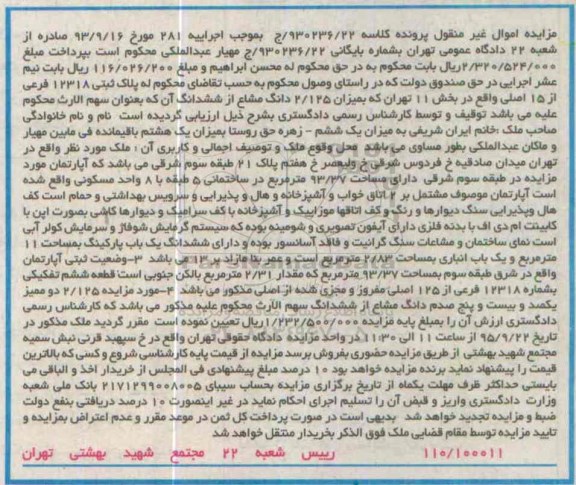 مزایده اموال غیر منقول پرونده کلاسه ۹۳۰۲۳۶/۲۲/ج بموجب اجراییه ۲۸۱ مورخ ۹۳/۹/۱۶ صادره از
شعبه ۲۲ دادگاه عمومی تهران بشماره بایگانی ۹۳۰۲۳۶/۲۲/ج مهیار عبدالملکی محکوم است بپرداخت مبلغ
۲/۳۲۰/۵۲۴/۰۰۰ریال بابت محکوم به در حق محکوم له محسن ابراهیم و مبلغ ۱۱۶/۰۲۶/۲۰۰ ریال بابت نیم
عشر اجرایی در حق صندوق دولت که در راستای وصول محکوم به حسب تقاضای محکوم له پلاک ثبتی ۱۲۳۱۸ فرعی
از ۱۵ اصلی واقع در بخش ۱۱ تهران که بمیزان ۲/۱۲۵ دانگ مشاع از ششدانگ آن که بعنوان سهم الارث محکوم
علیه می باشد توقیف و توسط کارشناس رسمی دادگستری بشرح ذیل ارزیابی گردیده است نام و نام خانوادگی
صاحب ملک :خانم ایران شریفی به میزان یک ششم - زهره حق روستا بمیزان یک هشتم باقیمانده فی مابین مهیار
و ماکان عبدالملکی بطور مساوی می باشد محل وقوع ملک و توصیف اجمالی و کاربری آن : ملک مورد نظر واقع در
تهران میدان صادقیه خ فردوس شرقی خ ولیعصر خ هفتم پلاک ۲۱ طبقه سوم شرقی می باشد که آپارتمان مورد
مزایده در طبقه سوم شرقی دارای مساحت ۹۳/۳۷ مترمربع در ساختمانی ۵ طبقه با ۸ واحد مسکونی واقع شده
است آپارتمان موصوف مشتمل بر ۲ اتاق خواب و آشپزخانه و هال و پذیرایی و سرویس بهداشتی و حمام است کف
هال وپذیرایی سنگ دیوارها و رنگ و کف اتاقها موزاییک و آشپزخانه با کف سرامیک و دیوارها کاشی بصورت اپن با
کابینت ام دی اف با بدنه فلزی دارای آیفون تصویری و شومینه بوده که سیستم گرمایش شوفاژ و سرمایش کولر آبی
است نمای ساختمان و مشاعات سنگ گرانیت و فاقد آسانسور بوده و دارای ششدانگ یک باب پارکینگ بمساحت ۱۱
مترمربع و یک باب انباری بمساحت ۲/۸۳ مترمربع است و عمر بنا مازاد بر ۱۳ می باشد ۳-وضعیت ثبتی آپارتمان
واقع در شرق طبقه سوم بمساحت ۹۳/۳۷ مترمربع که مقدار ۲/۳۱ مترمربع بالکن جنوبی است قطعه ششم تفکیکی
بشماره ۱۲۳۱۸ فرعی از ۱۲۵ اصلی مفروز و مجزی شده از اصلی مذکور می باشد ۴-مورد مزایده ۲/۱۲۵ دو ممیز
یکصد و بیست و پنج صدم دانگ مشاع از ششدانگ سهم الارث محکوم علیه مذکور می باشد که کارشناس رسمی
دادگستری ارزش آن را بمبلغ پایه مزایده ۱/۲۳۲/۵۰۰/۰۰۰ریال تعیین نموده است مقرر گردید ملک مذکور در
تاریخ ۹۵/۹/۲۲ از ساعت ۱۱ الی ۱۱:۳۰در واحد مزایده دادگاه حقوقی تهران واقع در خ سپهبد قرنی نبش سمیه
مجتمع شهید بهشتی از طریق مزایده حضوری بفروش برسد مزایده از قیمت پایه کارشناسی شروع و کسی که بالاترین
قیمت را پیشنهاد نماید برنده مزایده خواهد بود ۱۰ درصد مبلغ پیشنهادی فی المجلس از خریدار اخذ و الباقی می
بایستی حداکثر ظرف مهلت یکماه از تاریخ برگزاری مزایده بحساب سیبای ۲۱۷۱۲۹۹۰۰۸۰۰۵ بانک ملی شعبه
وزارت دادگستری واریز و قبض آن را تسلیم اجرای احکام نماید در غیر اینصورت ۱۰ درصد دریافتی بنفع دولت
ضبط و مزایده تجدید خواهد شد بدیهی است در صورت پرداخت کل ثمن در موعد مقرر و عدم اعتراض بمزایده و
تایید مزایده توسط مقام قضایی ملک فوق الذکر بخریدار منتقل خواهد شد
۱۱۰/۱۰۰۰۱۱ رییس شعبه ۲۲ مجتمع شهید بهشتی تهران